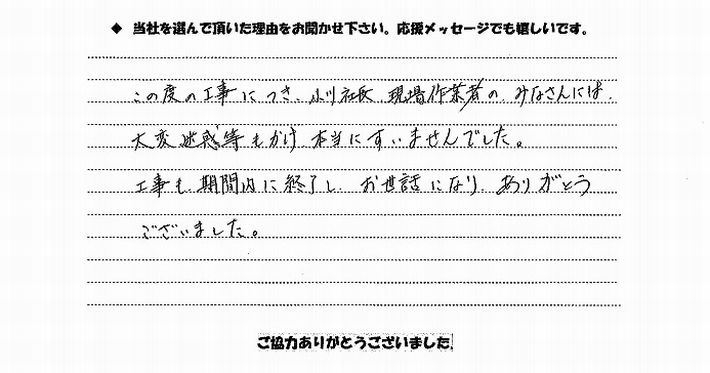 ◆ 当社を選んで頂いた理由をお聞かせ下さい。応援メッセージでも嬉しいです。
この度の工事につき、小川社長 現場作業者の みなさんには、
大変迷惑等もかけ 本当にすいませんでした。
工事も 期間内に終了し、お世話になり、ありがとう
ございました。
ご協力ありがとうございました